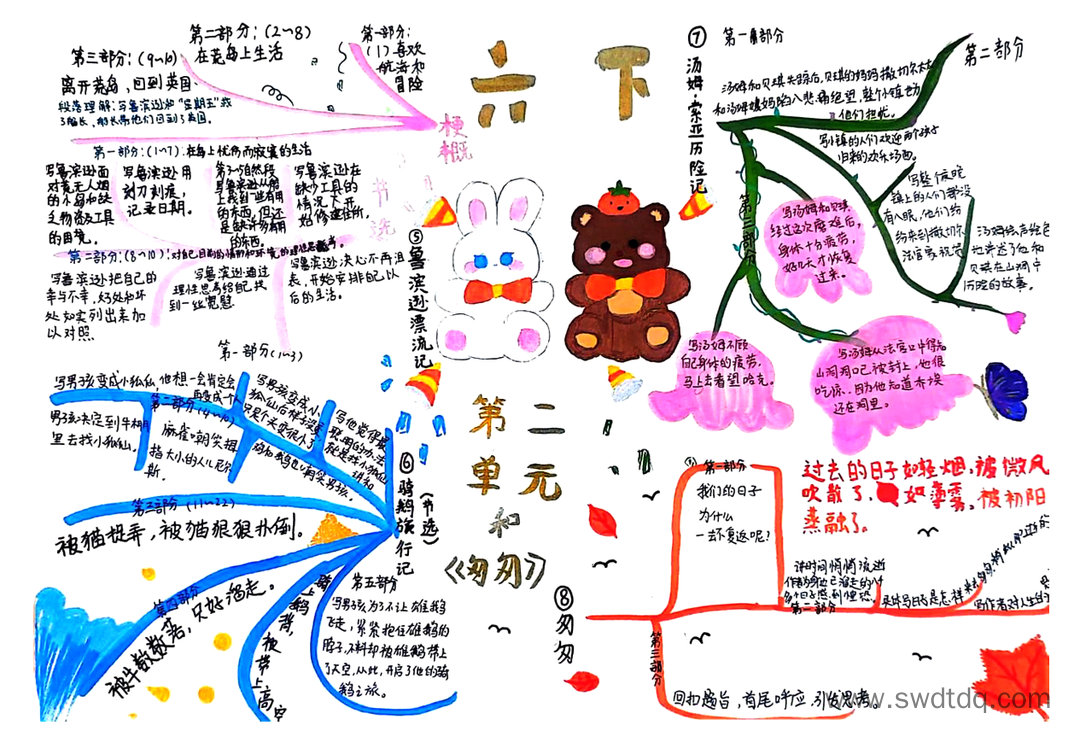 六下
第二单元和《匆匆》
⑤鲁滨逊漂流记
梗概
第一部分：
(1)喜欢
航海和
冒险
第二部分：(2~8)
在荒岛上生活
第三部分：(9~10)
离开荒岛，回到英国.
段落理解：写鲁滨逊和"星期五"救
了船长，船长带他们回到了英国。
节选
第一部分：(1~7)：在岛上忧伤而寂寞的生活
写鲁滨逊面
对荒无人烟
的小岛和缺
乏物资及工具
的困境。
写鲁滨逊用
刻刀刻痕，
记录日期。
第3~5自然段
写鲁滨逊从船
上找到一些有用
的东西，但还
是缺许多有用
的东西。
写鲁滨逊在
缺少工具的
情况下开
始修建住所。
第二部分：(8~10)：对自己目前的情形和环境的理性思考。
写鲁滨逊把自己的
幸与不幸，好处和坏
处如实列出来加
以对照
写鲁滨逊通过
理性思考给自己找
到一丝宽慰
写鲁滨逊决心不再沮
丧，开始安排自己以
后的生活。
⑥骑鹅旅行记
(节选)
第一部分(1~3)
写男孩变成小狐仙
男孩决定到牛棚
里去找小狐仙。
麻雀嘲笑拇
指大小的人儿尼尔
斯.
第三部分(11~22)
被猫捉弄，被猫狠狠扑倒。
第四部分
被牛数数落，只好溜走。
骑上鹅背，被带上高空
第五部分
写男孩为了不让雄鹅
飞走，紧紧抱住雄鹅的
脖子，不料却被雄鹅带上
了天空，从此，开启了他的骑
鹅之旅。
⑦汤姆·索亚历险记
第一部分
汤姆和贝琪失踪后，贝琪的妈妈撒切尔太太
和汤姆姨妈陷入悲痛绝望，整个小镇也为
他们担忧。
第二部分
写小镇的人们欢迎两个孩子
归来的欢乐场面。
写整个晚
镇上的人们都没
有入眠，他们纷
纷来到撒切尔
法官家祝贺
汤姆绘声绘色
地讲述了他和
贝琪在山洞中
历险的故事。
第三部分
写汤姆和贝琪
经过这次磨难后，
身体十分疲劳，
好几天才恢复
过来。
写汤姆不顾
自己身体的疲劳，
马上去看望哈克。
写汤姆从法官口中得知
山洞洞口已被封上，他很
吃惊，因为他知道乔埃
还在洞里。
⑧匆匆
第一部分
我们的日子
为什么
一去不复返呢？
过去的日子如轻烟，被微风
吹散了，如薄雾，被初阳
蒸融了。
讲时间悄悄流逝
第二部分
第三部分
回扣题旨，首尾呼应，引发思考。
www.swdtdq.com